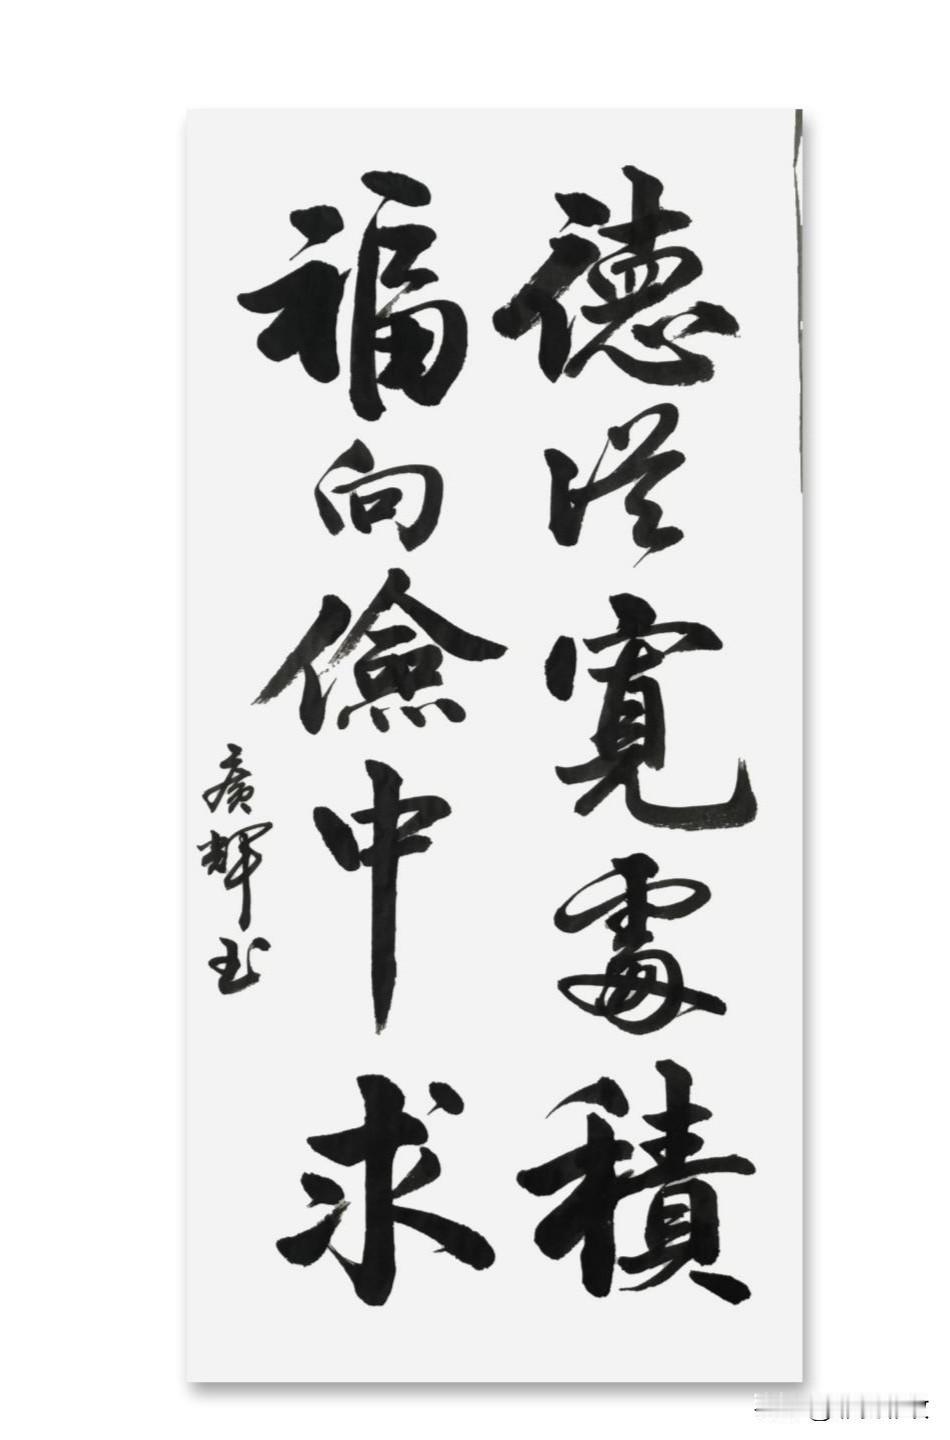 德從寬處積
福向儉中求
廣輝书